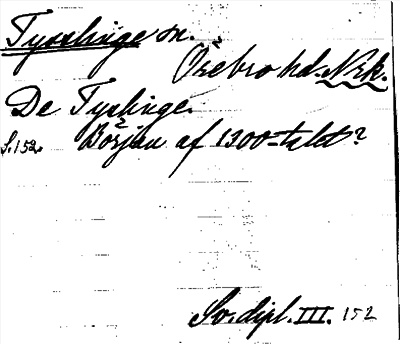 Tysslinge sn.
Örebro hd. Nrk.
De Tyslinge.
S. 152. Början af 1300-talet?
Sv. dipl. III. 152